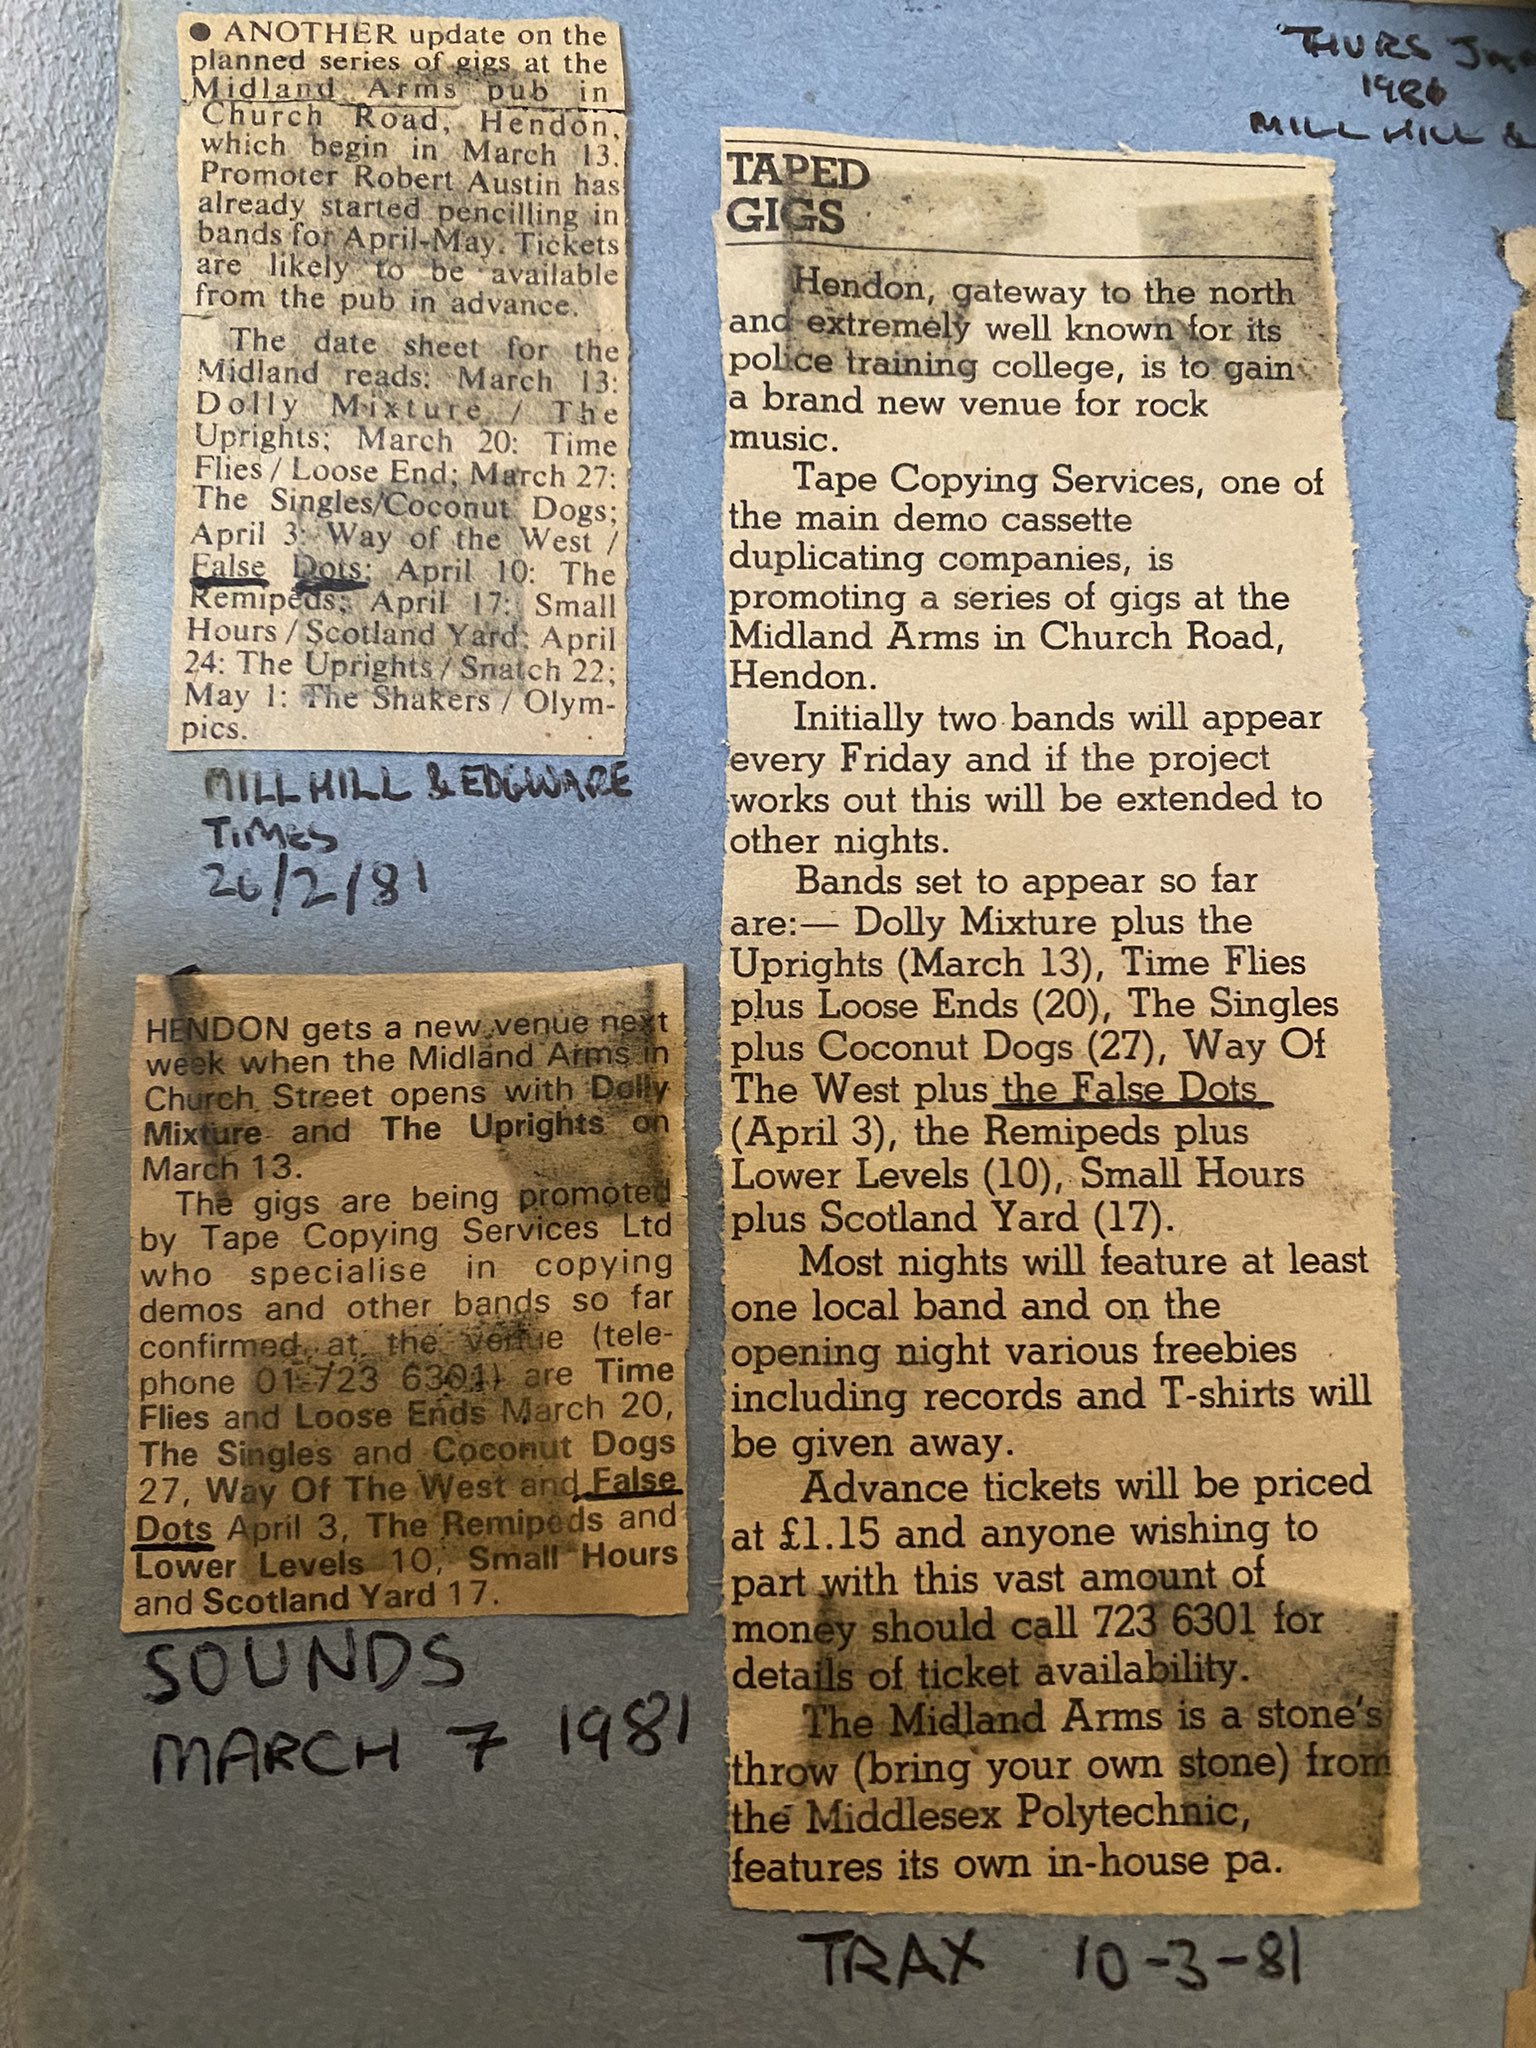 ● ANOTHER update on the
planned series of gigs at the
Midland Arms pub in
Church Road, Hendon,
which begin in March 13.
Promoter Robert Austin has
already started pencilling in
bands for April-May. Tickets
are likely to be available
from the pub in advance.
The date sheet for the
Midland reads: March 13:
Dolly Mixture / The
Uprights; March 20: Time
Flies / Loose End; March 27:
The Singles/Coconut Dogs;
April 3: Way of the West /
False Dots; April 10: The
Remipeds; April 17: Small
Hours / Scotland Yard; April
24: The Uprights / Snatch 22;
May 1: The Shakers / Olym-
pics.
MILL HILL & EDGWARE
TIMES
26/2/81
HENDON gets a new venue next
week when the Midland Arms in
Church Street opens with Dolly
Mixture and The Uprights on
March 13.
The gigs are being promoted
by Tape Copying Services Ltd
who specialise in copying
demos and other bands so far
confirmed at the venue (tele-
phone 01-723 6301) are Time
Flies and Loose Ends March 20,
The Singles and Coconut Dogs
27, Way Of The West and False
Dots April 3, The Remipeds and
Lower Levels 10, Small Hours
and Scotland Yard 17.
SOUNDS
MARCH 7 1981
THURS
MILL HILL &
TAPED
GIGS
Hendon, gateway to the north
and extremely well known for its
police training college, is to gain
a brand new venue for rock
music.
Tape Copying Services, one of
the main demo cassette
duplicating companies, is
promoting a series of gigs at the
Midland Arms in Church Road,
Hendon.
Initially two bands will appear
every Friday and if the project
works out this will be extended to
other nights.
Bands set to appear so far
are:— Dolly Mixture plus the
Uprights (March 13), Time Flies
plus Loose Ends (20), The Singles
plus Coconut Dogs (27), Way Of
The West plus the False Dots
(April 3), the Remipeds plus
Lower Levels (10), Small Hours
plus Scotland Yard (17).
Most nights will feature at least
one local band and on the
opening night various freebies
including records and T-shirts will
be given away.
Advance tickets will be priced
at £1.15 and anyone wishing to
part with this vast amount of
money should call 723 6301 for
details of ticket availability.
The Midland Arms is a stone's
throw (bring your own stone) from
the Middlesex Polytechnic,
features its own in-house pa.
TRAX 10-3-81